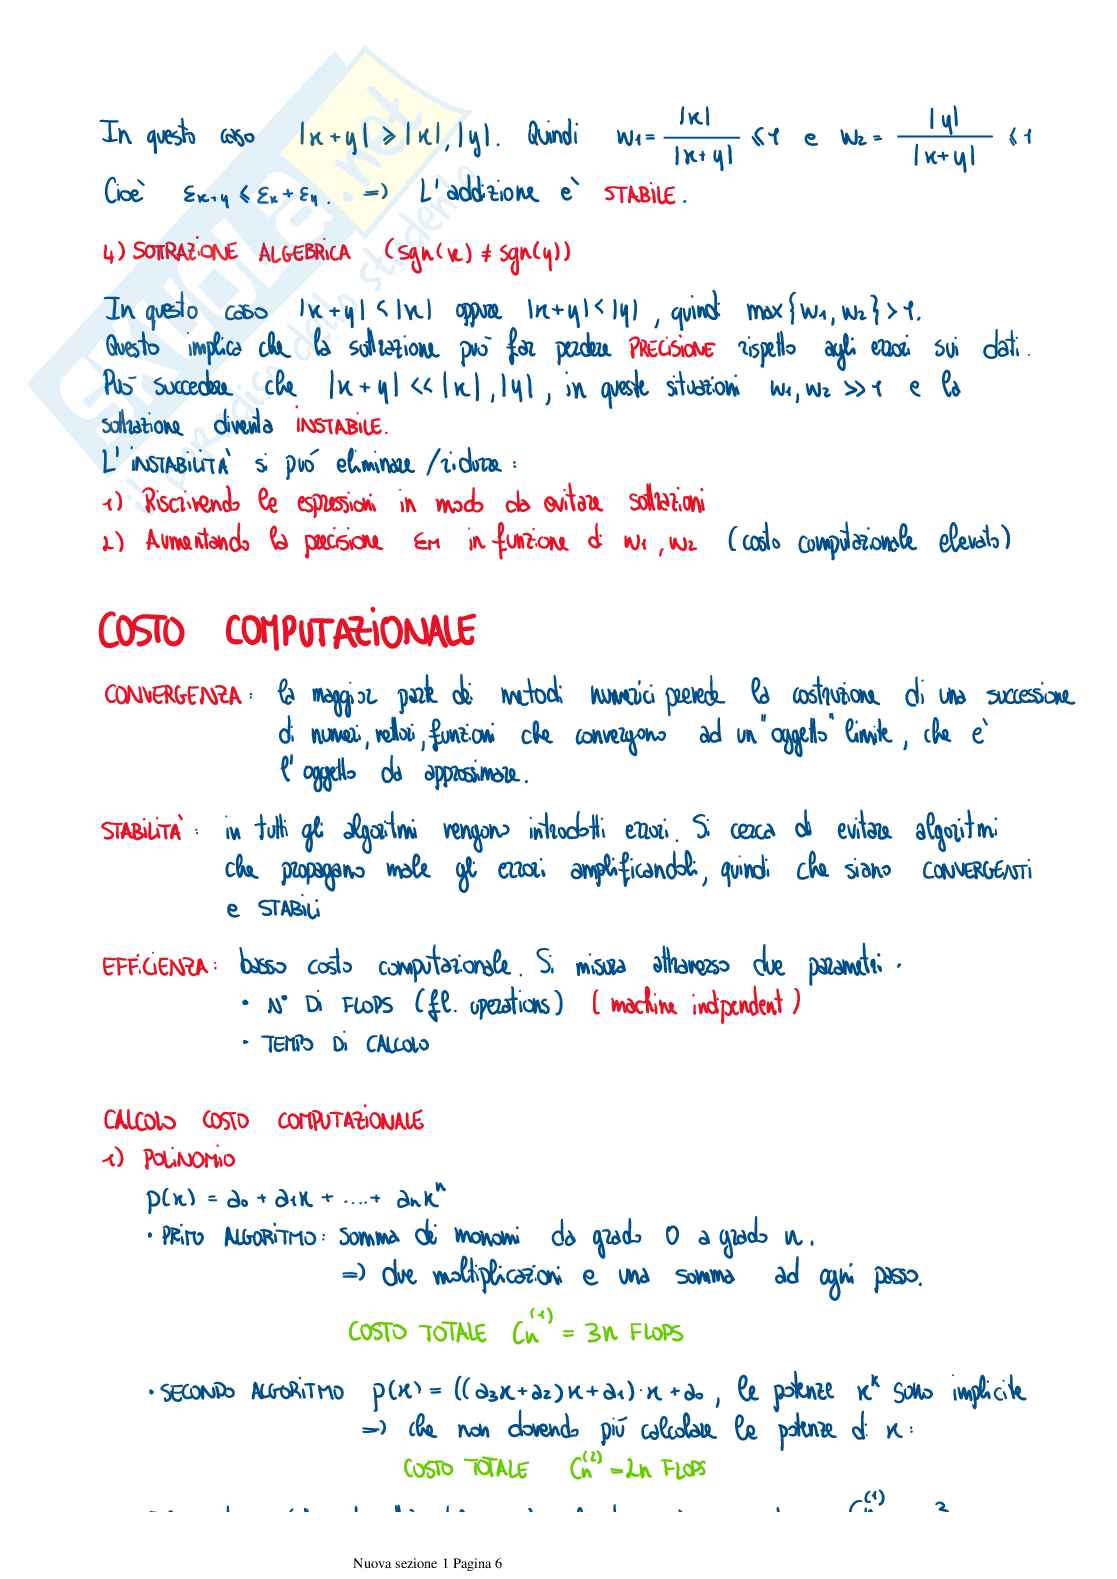 In questo caso |x+y| ⩾ |x|,|y|. Quindi w1 = |x| / |x+y| ⩽ 1 e w2 = |y| / |x+y| ⩽ 1
Cioè εx+y ⩽ εx + εy. => L'addizione è STABILE.
4) SOTTRAZIONE ALGEBRICA (sgn(x) ≠ sgn(y))
In questo caso |x+y| < |x| oppure |x+y| < |y|, quindi max{w1, w2} > 1.
Questo implica che la sottrazione può far perdere PRECISIONE rispetto agli errori sui dati.
Può succedere che |x+y| << |x|,|y|, in queste situazioni w1, w2 >> 1 e la
sottrazione diventa INSTABILE.
L'INSTABILITÀ si può eliminare / ridurre:
1) Riscrivendo le espressioni in modo da evitare sottrazioni
2) Aumentando la precisione εM in funzione di w1, w2 (costo computazionale elevato)
COSTO COMPUTAZIONALE
CONVERGENZA: la maggior parte dei metodi numerici prevede la costruzione di una successione
di numeri, vettori, funzioni che convergono ad un "oggetto" limite, che è
l'oggetto da approssimare.
STABILITÀ: in tutti gli algoritmi vengono introdotti errori. Si cerca di evitare algoritmi
che propagano male gli errori amplificandoli, quindi che siano CONVERGENTI
e STABILI
EFFICIENZA: basso costo computazionale. Si misura attraverso due parametri.
• N° DI FLOPS (fl. operations) (machine indpendent)
• TEMPO DI CALCOLO
CALCOLO COSTO COMPUTAZIONALE
1) POLINOMIO
p(x) = a0 + a1x + ....+ anx^n
• PRIMO ALGORITMO: somma dei monomi da grado 0 a grado n.
=> due moltiplicazioni e una somma ad ogni passo.
COSTO TOTALE Cn^(1) = 3n FLOPS
• SECONDO ALGORITMO p(x) = ((a3x+a2)x+a1)·x+a0, le potenze x^k sono implicite
=> che non dovendo più calcolare le potenze di x:
COSTO TOTALE Cn^(2) = 2n FLOPS
Nuova sezione 1 Pagina 6